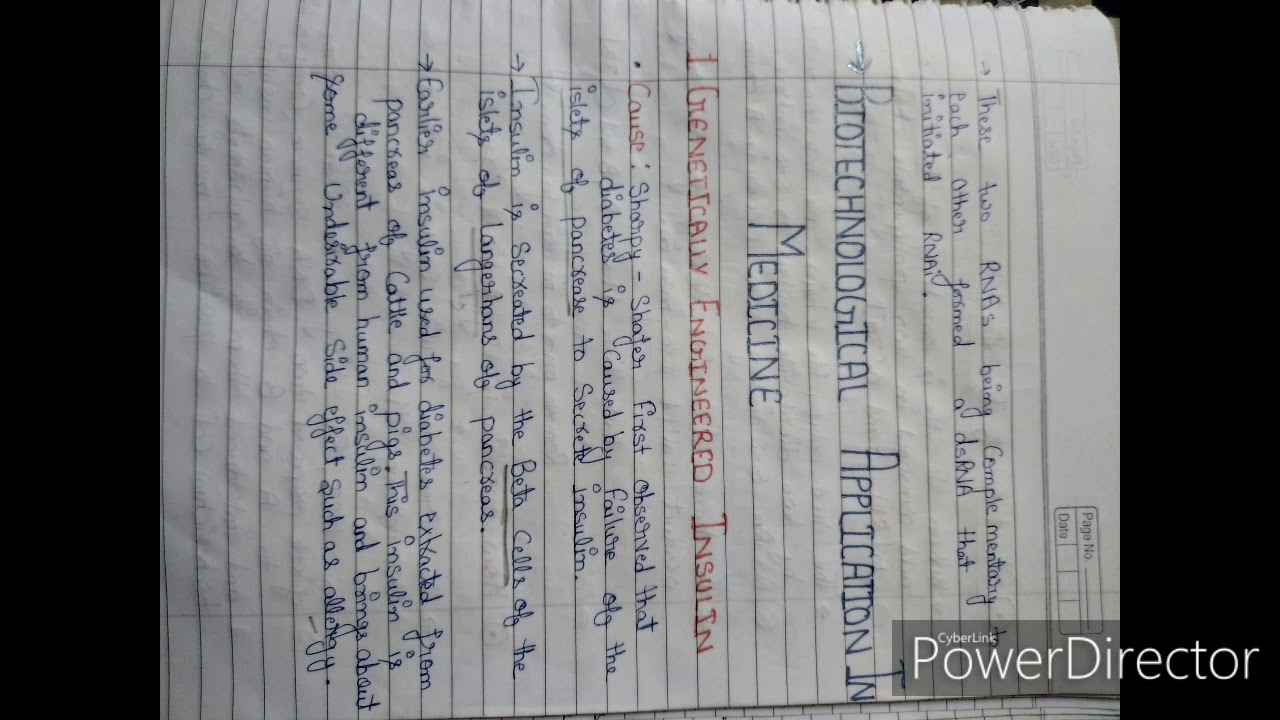 Page No.
Date
→ These two RNAs being Complementary to
each other formed a dsRNA that
initiated RNAi.
→ BIOTECHNOLOGICAL APPLICATION IN
MEDICINE
1 GENETICALLY ENGINEERED INSULIN
• Cause: Sharpy - Shafer First observed that
diabetes is Caused by failure of the
islets of pancrease to Secrete insulin.
→ Insulin is Secreated by the Beta Cells of the
islets of langerhans of pancreas.
→ Earlier insulin used for diabetes extracted from
pancreas of Cattle and pigs. This insulin is
different from human insulin and brings about
some Undesirable Side effect Such as allergy.
CyberLink
PowerDirector